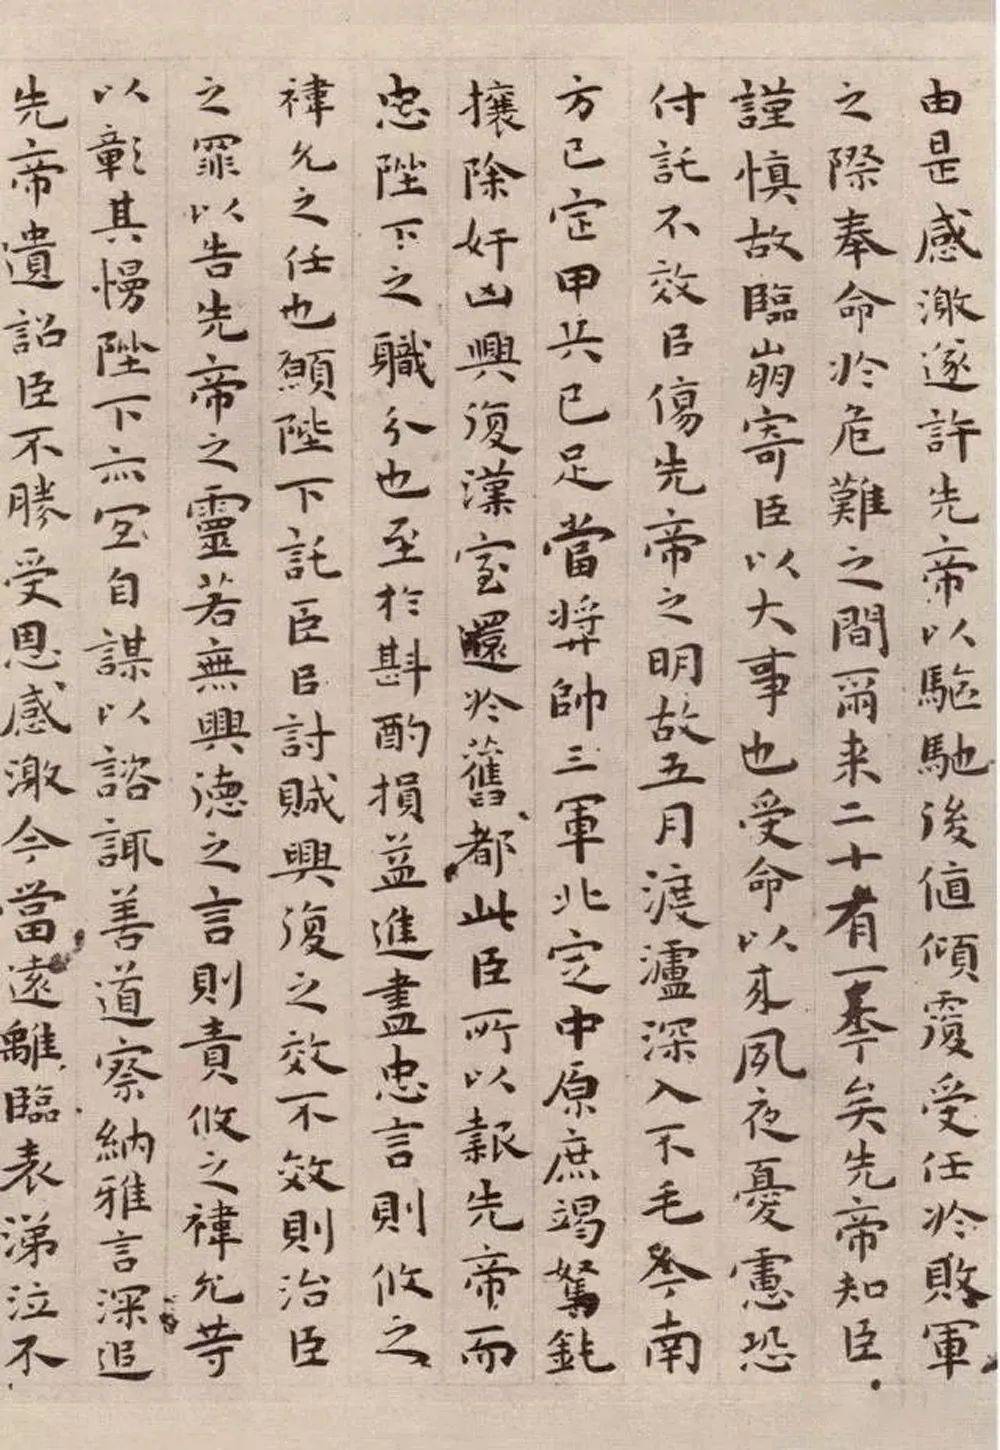 由是感激遂許先帝以驅馳後値傾覆受任於敗軍
之際奉命於危難之間爾来二十有一年矣先帝知臣
謹慎故臨崩寄臣以大事也受命以来夙夜憂慮恐
付託不效以傷先帝之明故五月渡瀘深入不毛今南
方已定甲兵已足當奬帥三軍北定中原庶竭駑鈍
攘除奸凶興復漢室還於舊都此臣所以報先帝而
忠陛下之職分也至於斟酌損益進盡忠言則攸之
禕允之任也願陛下託臣以討賊興復之效不效則治臣
之罪以告先帝之靈若無興德之言則責攸之禕允等
以彰其慢陛下亦宜自謀以諮諏善道察納雅言深追
先帝遺詔臣不勝受恩感激今當遠離臨表涕泣不